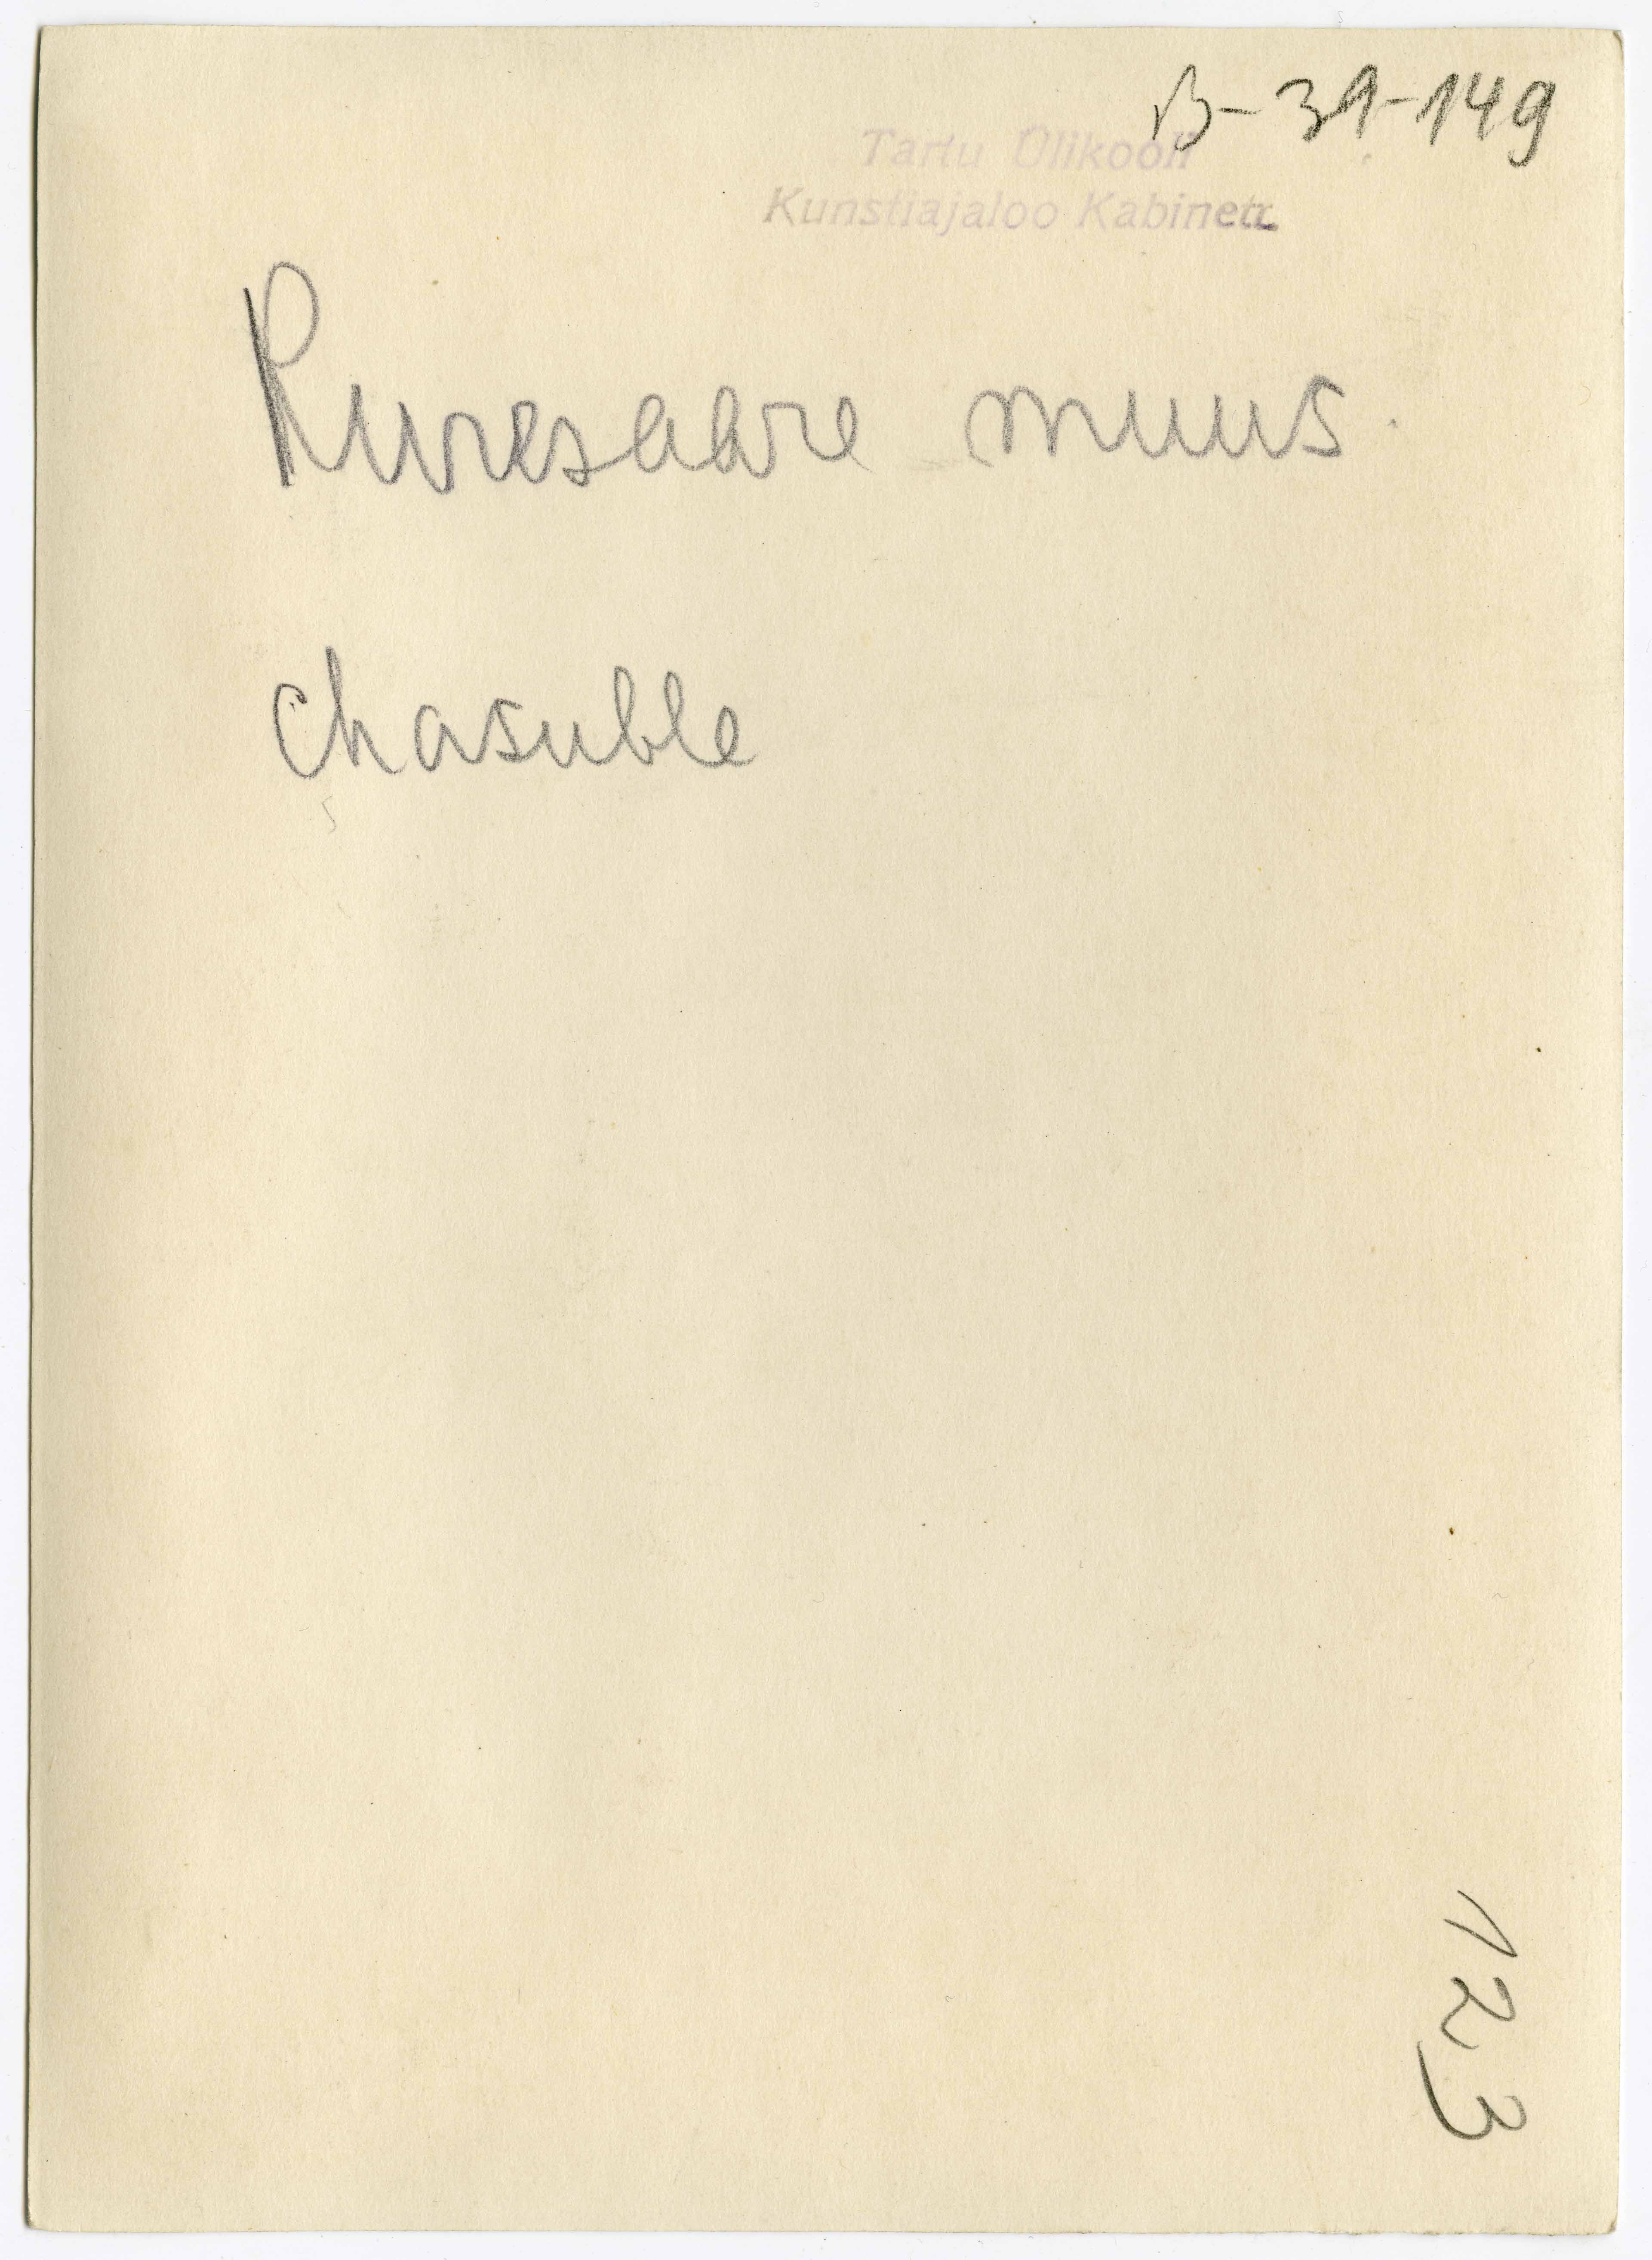 B-39-149
Tartu Ülikooli
Kunstiajaloo Kabinett
Kuresaare muus.
Chasuble
123